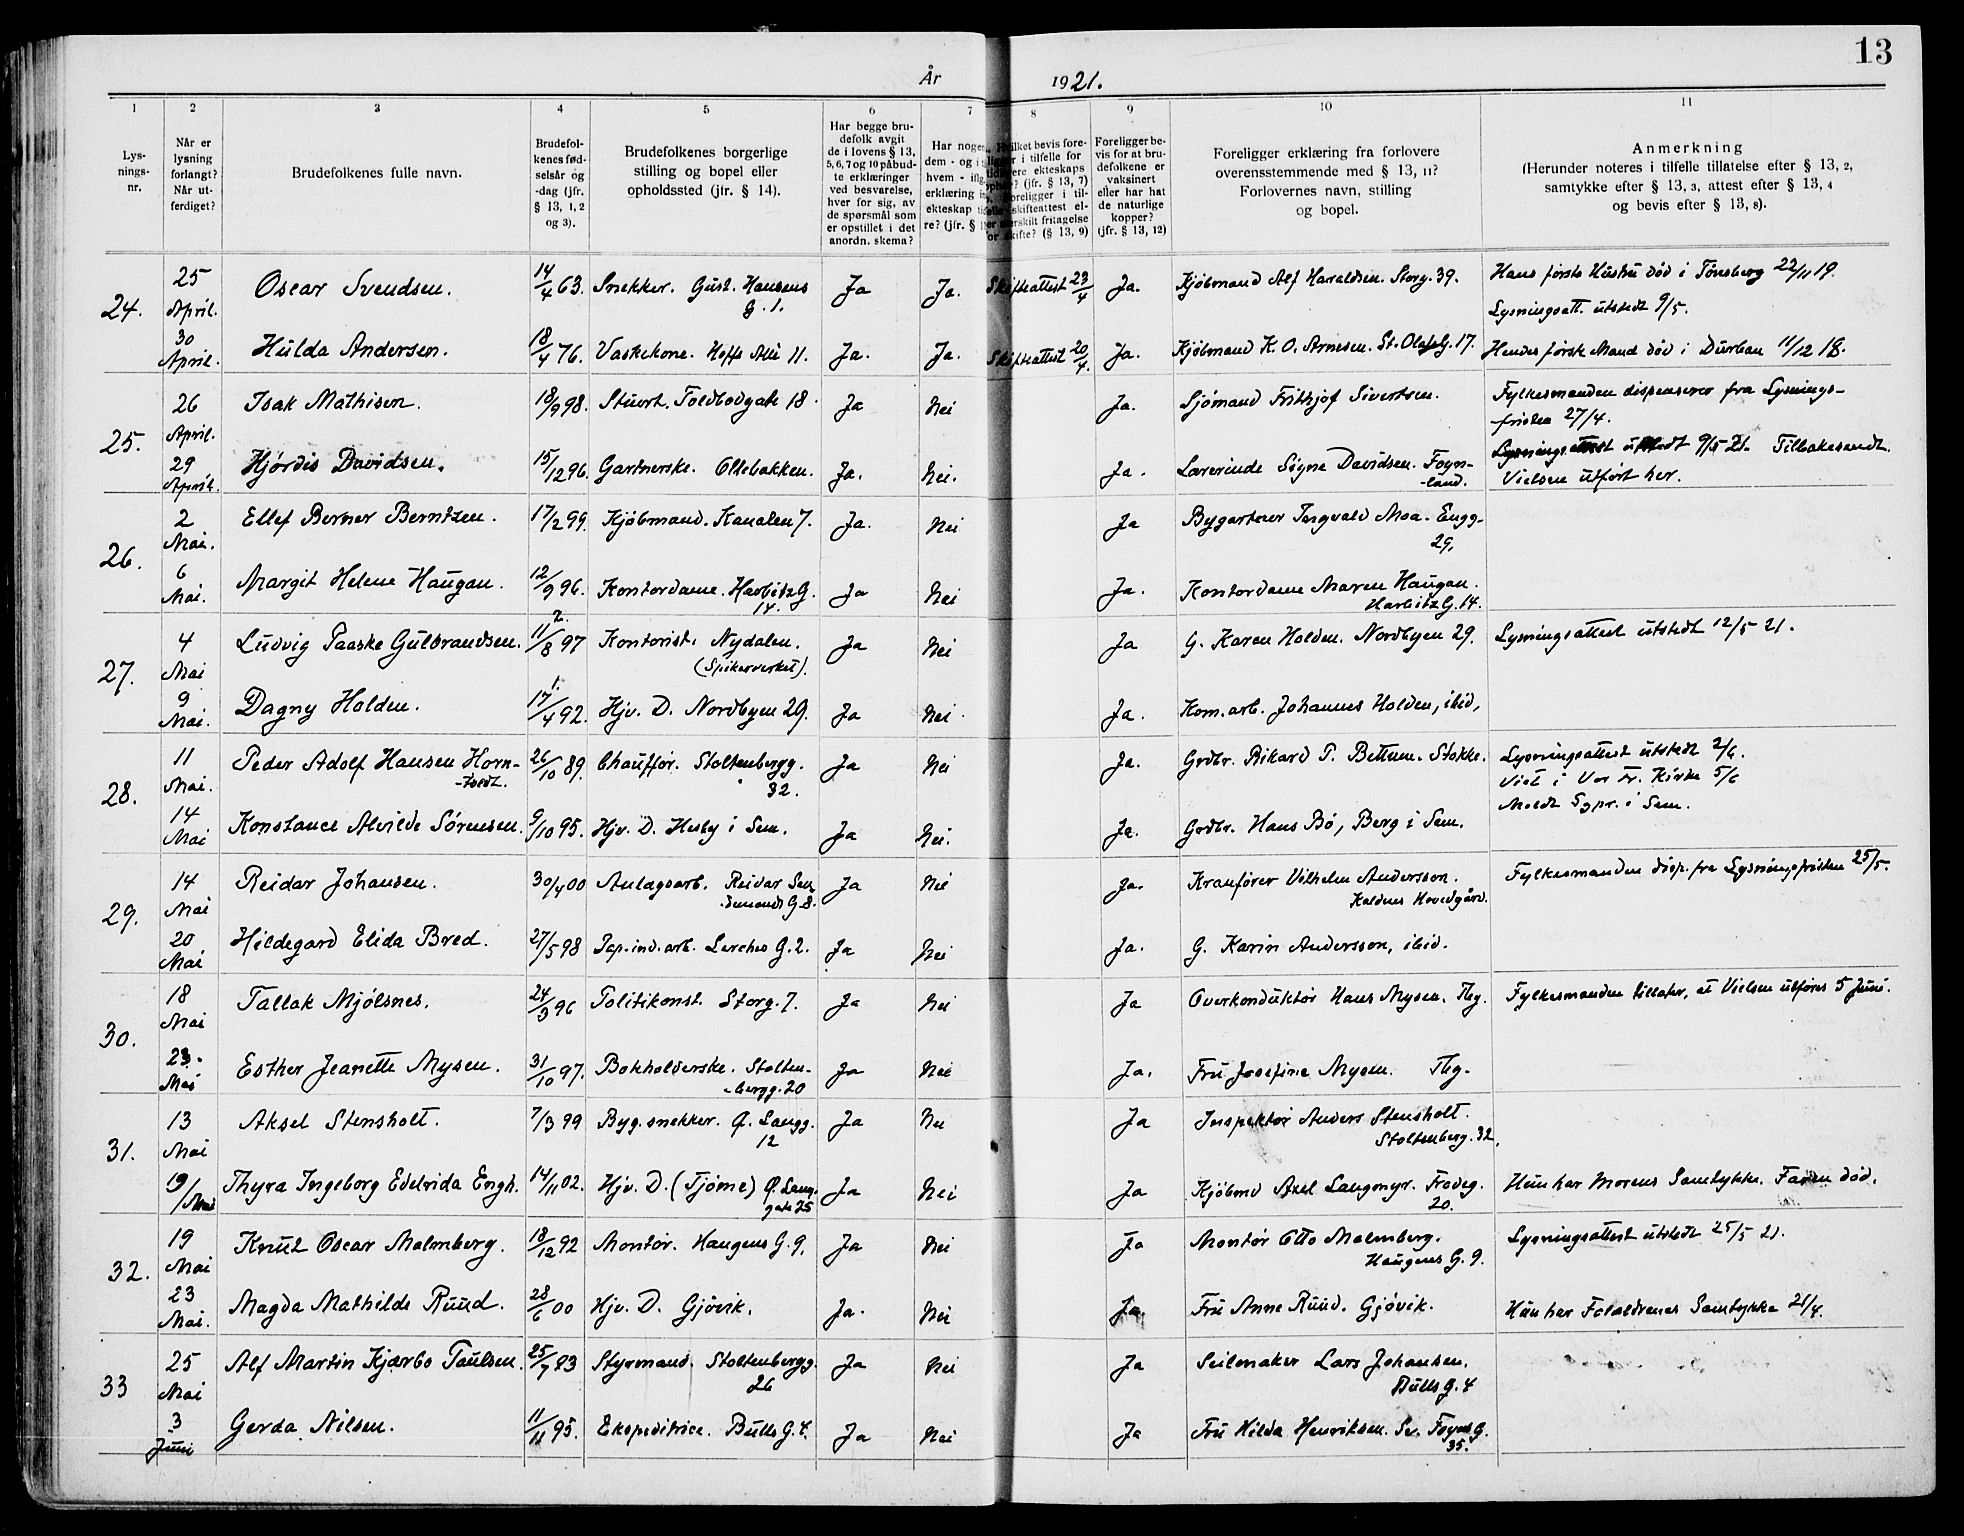 13
År 1921.
1 2 3 4 5 6 7 8 9 10 11
Lysnings-nr.
Når er lysning forlangt? Når utferdiget?
Brudefolkenes fulle navn.
Brudefolkenes fødselsår og -dag (jfr. § 13, 1, 2 og 3).
Brudefolkenes borgerlige stilling og bopel eller opholdssted (jfr. § 14).
Har begge brudefolk avgit de i lovens § 13, 5, 6, 7 og 10 påbudte erklæringer ved besvarelse, hver for sig, av de spørsmål som er opstillet i det anordn. skema?
Foreligger bevis for at brudefolkene er vaksinert eller har hat de naturlige kopper? (jfr. § 13, 12)
Foreligger erklæring fra forlovere overensstemmende med § 13, 11? Forlovernes navn, stilling og bopel.
Anmerkning
(Herunder noteres i tilfelle tillatelse efter § 13, 2, samtykke efter § 13, 3, attest efter § 13, 4 og bevis efter § 13, 8).
24. 25 April. Oscar Svendsen. 14/4 63. Snekker. Gust. Hansens G. 1. Ja Ja. Skifteattest 23/4 Ja. Kjöbmand Alf Haraldsen. Storg. 39. Hans første Hustru död i Tönsberg 22/11 19.
Lysningsatt. utstedt 9/5.
30 April. Hulda Andersen. 18/4 76. Vaskekone. Hoffs Alle 11. Ja. Ja. Skifteattest 20/4. Ja. Kjöbmand K. O. Arnesen. St. Olafs G. 17. Hendes første Mand död i Durban 11/12 18.
25. 26 April. Isak Mathisen. 18/9 98. Stuert. Toldbodgate 18. Ja Nei Ja. Sjömand Frithjof Sivertsen. Fylkesmanden dispenserer fra Lysnings-
fristen 27/4.
29 April. Hjördis Davidsen. 15/12 96. Gartnerske. Ollebakken. Ja. Nei. Ja. Lærerinde Signe Davidsen. Foyn-
land. Lysningsattest utstedt 9/5 21. Tilbakesendt.
Vielsen utfört her.
26. 2 Mai. Ellef Berner Berntzen. 17/2 99. Kjöbmand. Kanalen 7. Ja. Nei Ja Bygartner Ingvald Moa. Engg.
29.
6 Mai. Margit Helene Haugan. 12/9 96. Kontordame. Harbitz G. 14. Ja Nei Ja. Kontordame Maren Haugan.
Harbitz G. 14.
27. 4 Mai 2. Ludvig Paaske Gulbrandsen. 11/8 97 Kontorist. Nydalen. (Spikerverket). Ja Nei Ja G. Karen Holden. Nordbyen 29. Lysningsattest utstedt 12/5 21.
9 Mai. 1. Dagny Holden. 17/4 92. Hjv. D. Nordbyen 29. Ja Nei Ja. Kom. arb. Johannes Holden, ibid,
28. 11 Mai. Peder Adolf Hansen Horn-
toedt. 26/10 89. Chaufför. Stoltenbergg. 32. Ja Nei Ja. Grdbr. Rikard P. Bettum. Stokke. Lysningsattest utstedt 2/6.
Viet i Vor Fr. Kirke 5/6
Meldt Sgpr. i Sem.
14 Mai Konstance Alvilde Sörensen. 9/10 95. Hjv. D. Husby i Sem. Ja Nei. Ja. Grdbr. Hans Bö, Berg i Sem.
29. 14 Mai Reidar Johansen. 30/4 00 Anlagsarb. Reidar Sen-
demands G. 8. Ja Nei Ja. Kranförer Vilhelm Andersson.
Kaldnes Hovedgård. Fylkesmanden disp. fra Lysningsfristen 25/5.
20 Mai Hildegard Elida Bred. 27/5 98 Pap. ind. arb. Lerches G. 2. Ja Nei Ja. G. Karin Andersson, ibid.
30. 18 Mai Tallak Mjölsnes. 24/3 96 Politikonst. Storg. 7. Ja Nei Ja Overkonduktör Hans Mysen. Tbg. Fylkesmanden tillater, at Vielsen utföres 5 Juni.
23. Mai Esther Jeanette Mysen. 31/10 97. Bokholderske. Stolten-
bergg. 20 Ja Nei Ja. Fru Josefine Mysen. Tbg.
31. 13 Mai Aksel Stensholt. 7/3 99 Byg. snekker. Ö. Langg. 12 Ja Nei Ja Inspektör Anders Stensholt.
Stoltenberg. 32.
19/Mai Thyra Ingeborg Edelrida Engh. 14/11 02. Hjv. D. (Tjöme) Ö. Lang-
gate 25 Ja Nei Ja Kjöbmd Axel Langmyr. Frodeg.
20. Hun har Morens Samtykke. Faren död.
32. 19 Mai Knut Oscar Malmberg. 18/12 92 Montör. Haugens G. 9. Ja Nei Ja Montör Otto Malmberg.
Haugens G. 9. Lysningsattest utstedt 25/5 21.
23 Mai. Magda Mathilde Ruud. 28/6 00 Hjv. D. Gjövik. Ja. Nei Ja Fru Anne Ruud. Gjövik. Hun har Forældrenes Samtykke 21/4.
33 25 Mai Alf Martin Kjærbo Paulsen. 25/7 93 Styrmand. Stoltenbergg. 26 Ja Nei Ja Seilmaker Lars Johansen.
Bulls G. 4
3 Juni Gerda Nilsen. 11/11 95. Ekspeditrice. Bulls G. 4. Ja Nei Ja Fru Hilda Henriksen. Sv. Foyns G.
35.